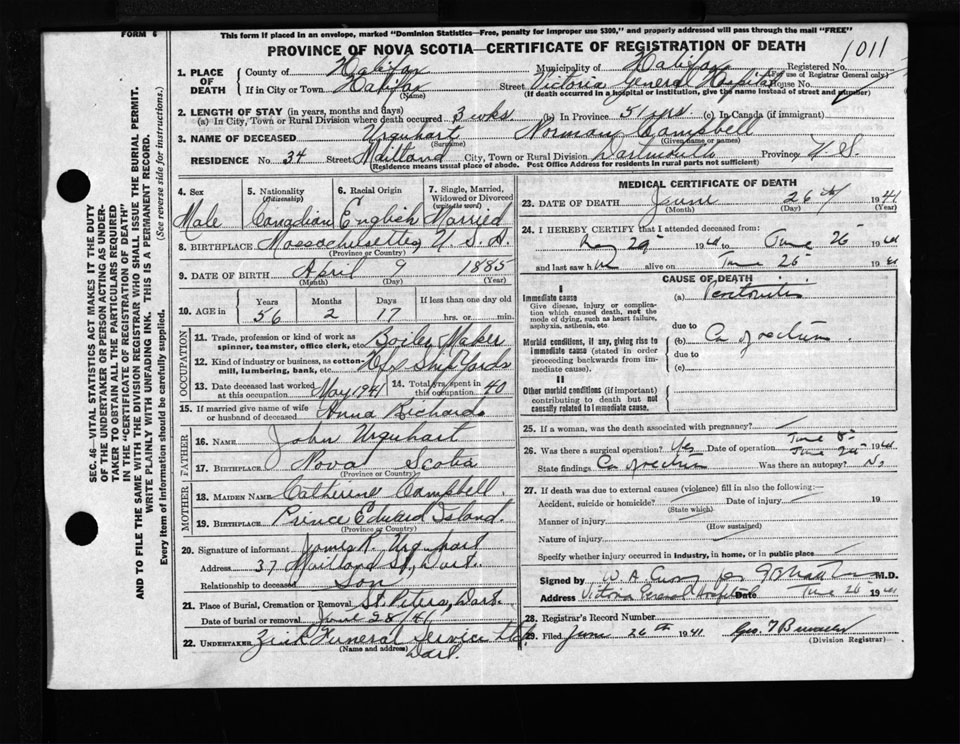 This form if placed in an envelope, marked "Dominion Statistics—Free, penalty for improper use $300," and properly addressed will pass through the mail "FREE"
FORM 6
PROVINCE OF NOVA SCOTIA—CERTIFICATE OF REGISTRATION OF DEATH
1011
1. PLACE OF DEATH County of Halifax Municipality of Halifax Registered No.
(For use of Registrar General only)
If in City or Town Halifax (Name) Street Victoria General Hospital House No.
(If death occurred in a hospital or institution, give the name instead of street and number)
2. LENGTH OF STAY (in years, months and days)
(a) In City, Town or Rural Division where death occurred 3 wks. (b) In Province 51 yrs. (c) In Canada (if immigrant)
3. NAME OF DECEASED Urquhart (Surname) Norman Campbell (Given name or names)
RESIDENCE No. 34 Street Maitland City, Town or Rural Division Dartmouth Province N.S.
(Residence means usual place of abode. Post Office Address for residents in rural parts not sufficient)
4. Sex Male
5. Nationality (Citizenship) Canadian
6. Racial Origin English
7. Single, Married, Widowed or Divorced (write the word) Married
8. BIRTHPLACE Massachusetts, U.S.A.
(Province or Country)
9. DATE OF BIRTH April 9 1885
(Month) (Day) (Year)
10. AGE IN Years 56 Months 2 Days 17 If less than one day old hrs. or min.
OCCUPATION
11. Trade, profession or kind of work as spinner, teamster, office clerk, etc. Boiler Maker
12. Kind of industry or business, as cotton-mill, lumbering, bank, etc. Hfx Ship Yards
13. Date deceased last worked at this occupation May 1941 14. Total yrs. spent in this occupation 40
15. If married give name of wife or husband of deceased Anna Richards
FATHER
16. NAME John Urquhart
17. BIRTHPLACE Nova Scotia
(Province or Country)
MOTHER
18. MAIDEN NAME Catherine Campbell
19. BIRTHPLACE Prince Edward Island.
(Province or Country)
20. Signature of informant James R. Urquhart
Address 37 Maitland St., Dart.
Relationship to deceased Son
21. Place of Burial, Cremation or Removal St. Peters, Dart.
Date of burial or removal June 28/41
22. UNDERTAKER Zink Funeral Service Ltd
(Name and address) Dart.
MEDICAL CERTIFICATE OF DEATH
23. DATE OF DEATH June 26th 1941
(Month) (Day) (Year)
24. I HEREBY CERTIFY that I attended deceased from:
May 29 1941 to June 26 1941
and last saw him alive on June 25 1941
CAUSE OF DEATH
I
Immediate cause (a) Peritonitis
Give disease, injury or complication which caused death, not the mode of dying, such as heart failure, asphyxia, asthenia, etc.
due to
Morbid conditions, if any, giving rise to immediate cause (stated in order proceeding backwards from immediate cause). (b) Ca of rectum
due to
(c)
II
Other morbid conditions (if important) contributing to death but not causally related to immediate cause.
25. If a woman, was the death associated with pregnancy?
26. Was there a surgical operation? Yes Date of operation June 5 - June 20 1941
State findings Ca of rectum Was there an autopsy? No
27. If death was due to external causes (violence) fill in also the following:
Accident, suicide or homicide? Date of injury 19
(State which)
Manner of injury
(How sustained)
Nature of injury
Specify whether injury occurred in industry, in home, or in public place
Signed by W. A. M.D.
Address Victoria General Hospital Date June 26 1941
28. Registrar's Record Number
29. Filed June 26th 1941 Geo. T
(Division Registrar)
SEC. 46—VITAL STATISTICS ACT MAKES IT THE DUTY
OF THE UNDERTAKER OR PERSON ACTING AS UNDER-
TAKER TO OBTAIN ALL THE PARTICULARS REQUIRED
IN THE "CERTIFICATE OF REGISTRATION OF DEATH"
AND TO FILE THE SAME WITH THE DIVISION REGISTRAR WHO SHALL ISSUE THE BURIAL PERMIT.
WRITE PLAINLY WITH UNFADING INK. THIS IS A PERMANENT RECORD.
Every item of Information should be carefully supplied. (See reverse side for instructions.)